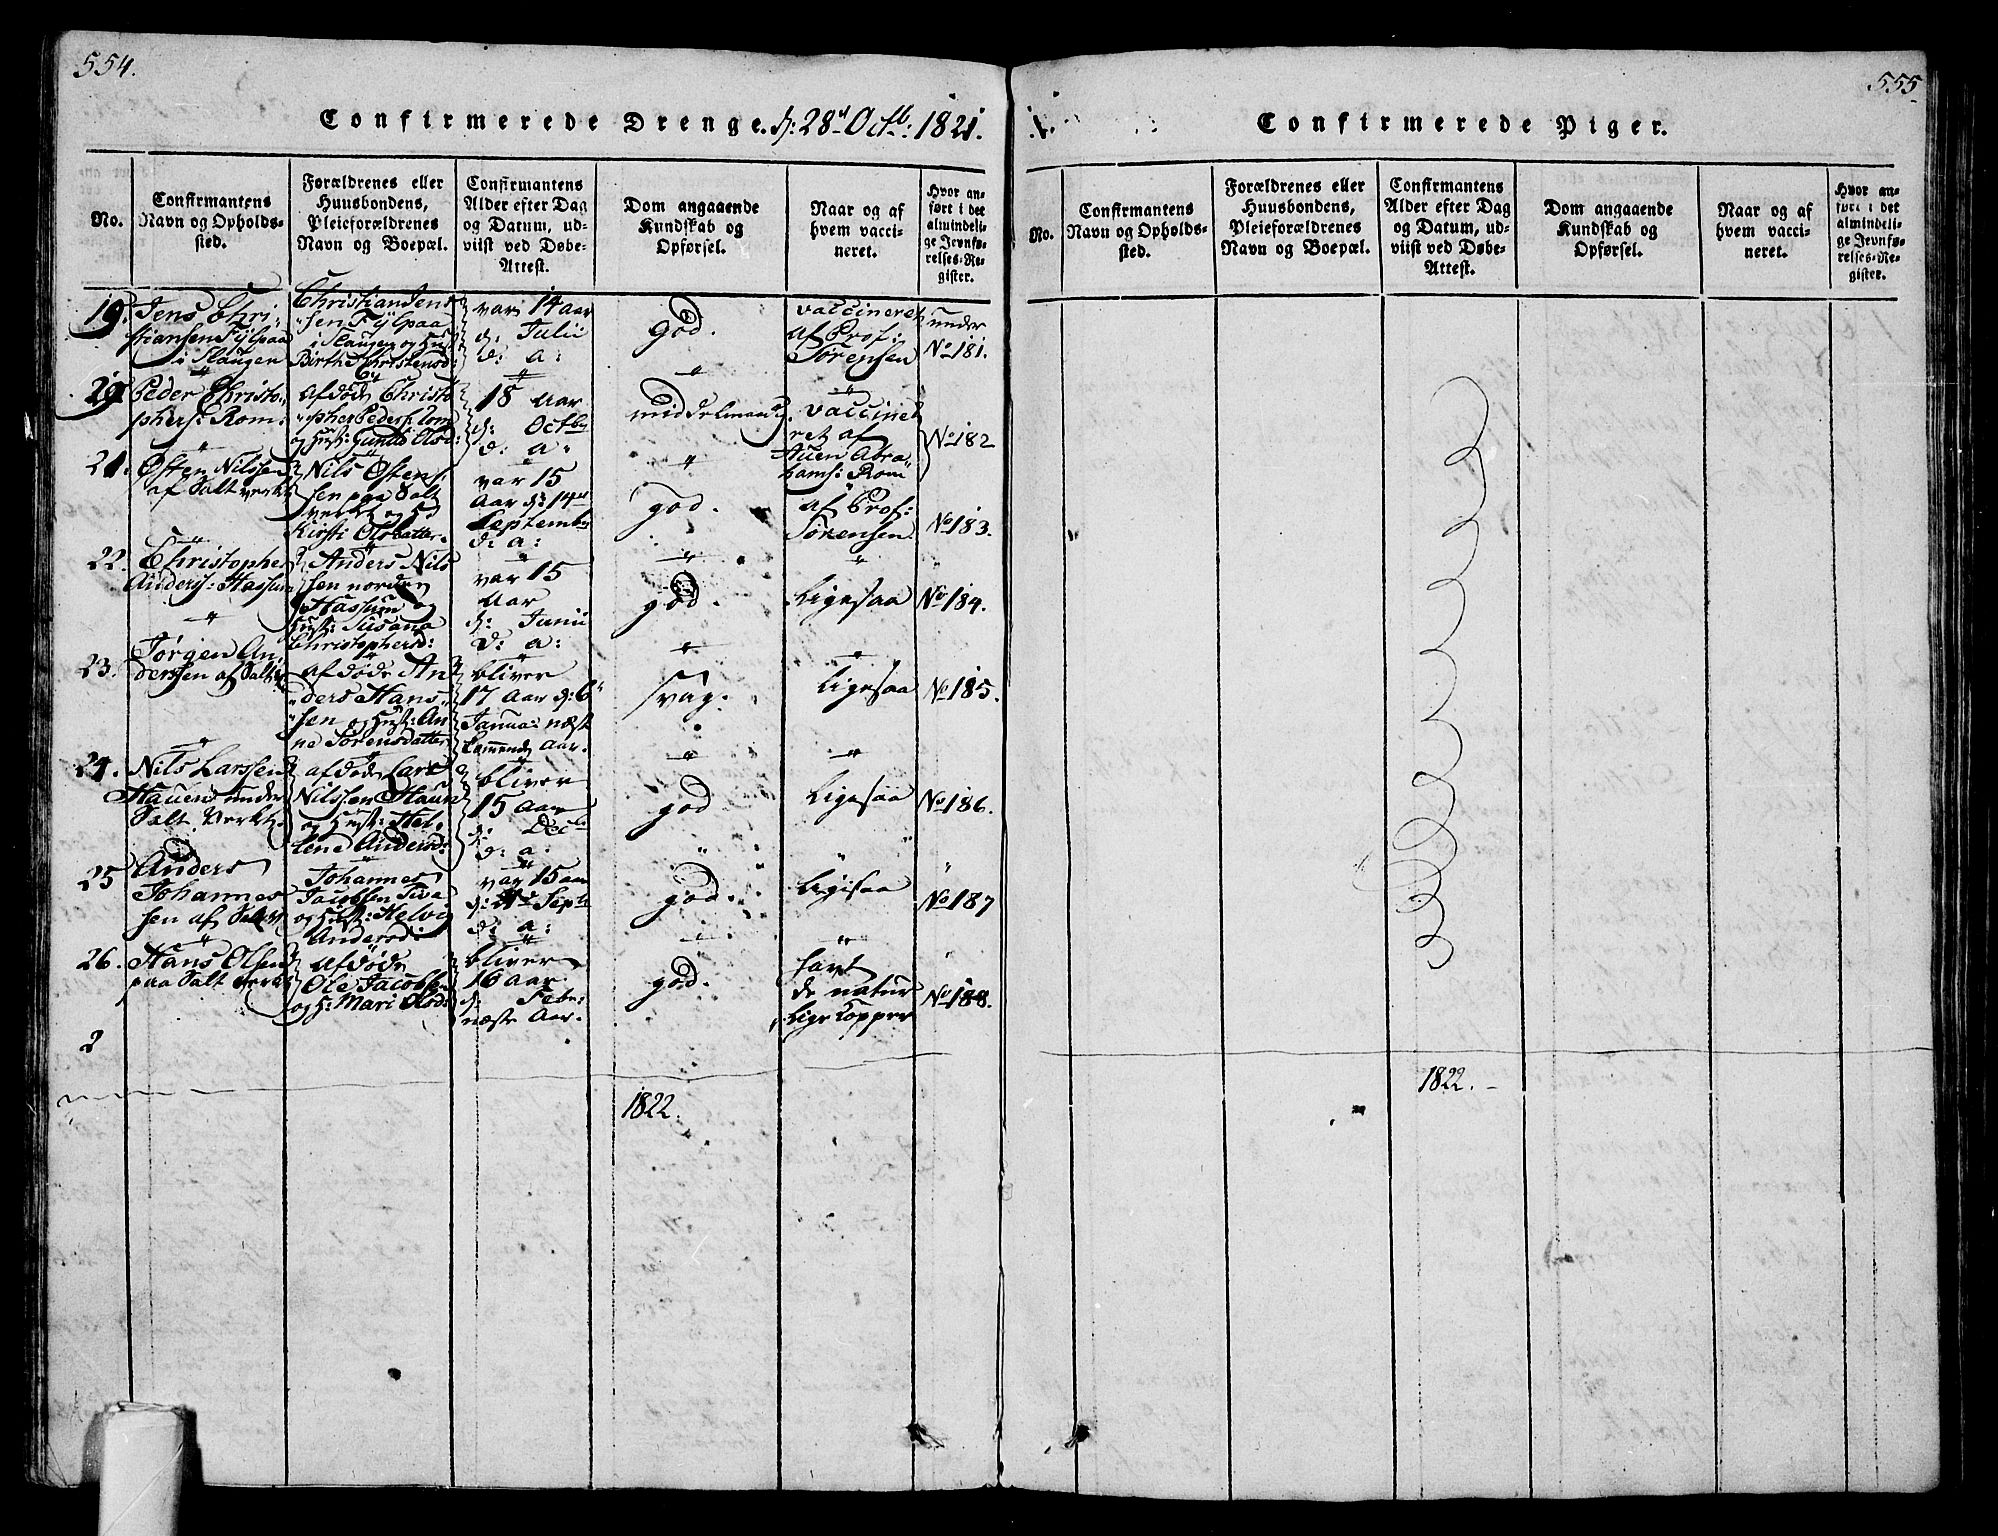 554.
Confirmerede Drenge. d: 28d Octb: 1821.
No.
Confirmantens
Navn og Opholds-
sted.
Forældrenes eller
Huusbondens,
Pleieforældrenes
Navn og Boepæl.
Confirmantens
Alder efter Dag
og Datum, ud-
viist ved Døbe-
Attest.
Dom angaaende
Kundskab og
Opførsel.
Naar og af
hvem vacci-
neret.
Hvor an-
ført i det
almindeli-
ge Jevnfø-
relses-Re-
gister.
19.
Jens Chri-
stiansen Fÿlpaa
i Slaugen
Christian Jens
sen Fÿlpaa
i Slaugen og Hust
Birthe Christensd:
var 14 aar
d: Julii
d: a:
god.
vaccineret
af Prof:
Sørensen
under
No 181.
Peder Christo-
phers: Rom:
afdøde Christo
pher Peders: Rom
og Hust: Gunild Olsd:
18 Aar
d: Octbr
d: a:
middelmaadig.
vaccine
ret af
Auen Abra
hams: Rom
No 182
21.
Østen Nilssen
af Saltverket
Nils Østens-
sen paa Salt
verket og H
Kirsti Olsdatter.
var 15
Aar d: 14de
Septembr
d: a:
god.
af Prof:
Sørensen
No 183.
22.
Christopher
Anders: Hassum
Anders Nils
sen norden
Hassum og
Hust: Susana
Christophersd:
var 15
Aar
d: Junii
d: a:
god.
Ligesaa
No 184.
23.
Jørgen An
derssen af Saltv
afdøde An
ders Hans-
sen og Hust: An
ne Sørensdatter
bliver
17 Aar d: 6
Janua: næst
kommende Aar.
svag.
Ligesaa
No 185.
24.
Nils Larssen
Hauen under
Salt Verket.
afdøde Lars
Nilssen Haun
og Hust: Hel-
lene Andersd:
bliver
15 aar
d: Decb
d: a:
god
Ligesaa
No 186.
25
Anders
Johannes
sen af Saltv
Johannes
Jacobsen
og Hust: Helvig
Andersd:
var 15 aar
d: Septe
d: a:
god.
Ligesaa
No 187
26.
Hans Olsen
paa Salt Verket
Afdøde
Ole Jacobsen
og H: Mari Olsd:
bliver
16 Aar
d: Febr:
næste Aar.
god.
havt
de natur
lige Kopper
No 188.
2
1822.
555.
Confirmerede Piger.
No.
Confirmantens
Navn og Opholds-
sted.
Forældrenes eller
Huusbondens,
Pleieforældrenes
Navn og Boepæl.
Confirmantens
Alder efter Dag
og Datum, ud-
viist ved Døbe-
Attest.
Dom angaaende
Kundskab og
Opførsel.
Naar og af
hvem vacci-
neret.
Hvor an-
ført i det
almindeli-
ge Jevnfø-
relses-Re-
gister.
1822.